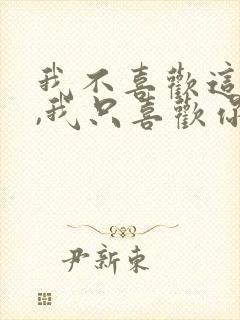 我不喜歡這
,我只喜歡你
尹新東